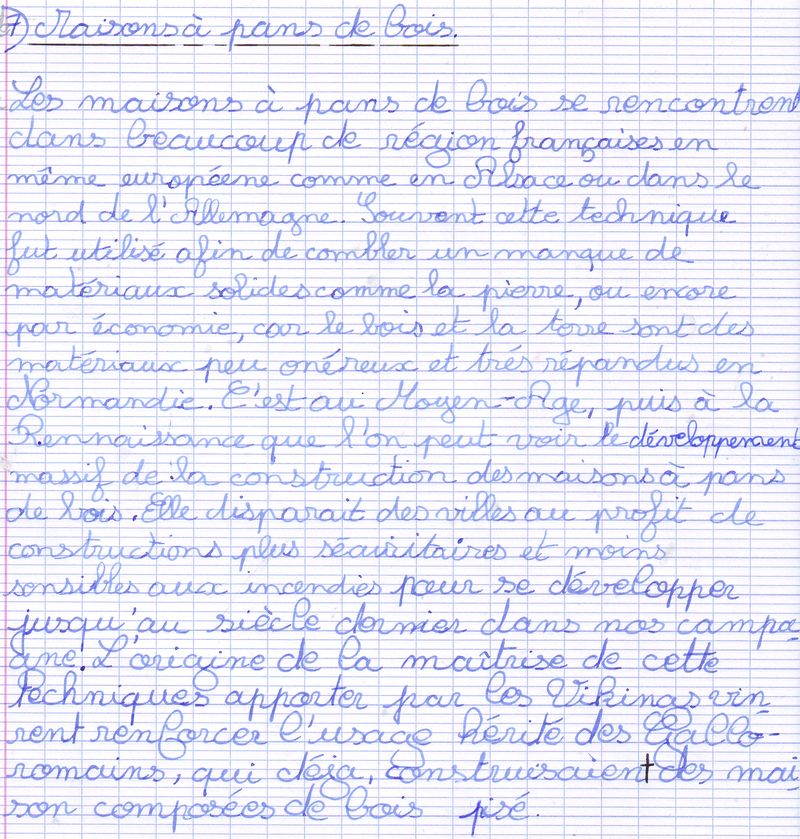 7) Maisons à pans de bois.
Les maisons à pans de bois se rencontrent
dans beaucoup de région françaises en
même européene comme en Alsace ou dans le
nord de l'Allemagne. Souvent cette technique
fut utilisé afin de combler un manque de
matériaux solides comme la pierre, ou encore
par économie, car le bois et la terre sont des
matériaux peu onéreux et trés répandus en
Normandie. C'est au Moyen-Age, puis à la
Rennaissance que l'on peut voir le développement
massif de la construction des maisons à pans
de bois. Elle disparait des villes au profit de
constructions plus sécuritaires et moins
sensibles aux incendies pour se développer
jusqu'au siècle dernier dans nos campa-
gne. L'origine de la maîtrise de cette
techniques apporter par les Vikings vin
rent renforcer l'usage hérité des Gallo-
romains, qui déja, construisaient des mai
son composées de bois pisé.